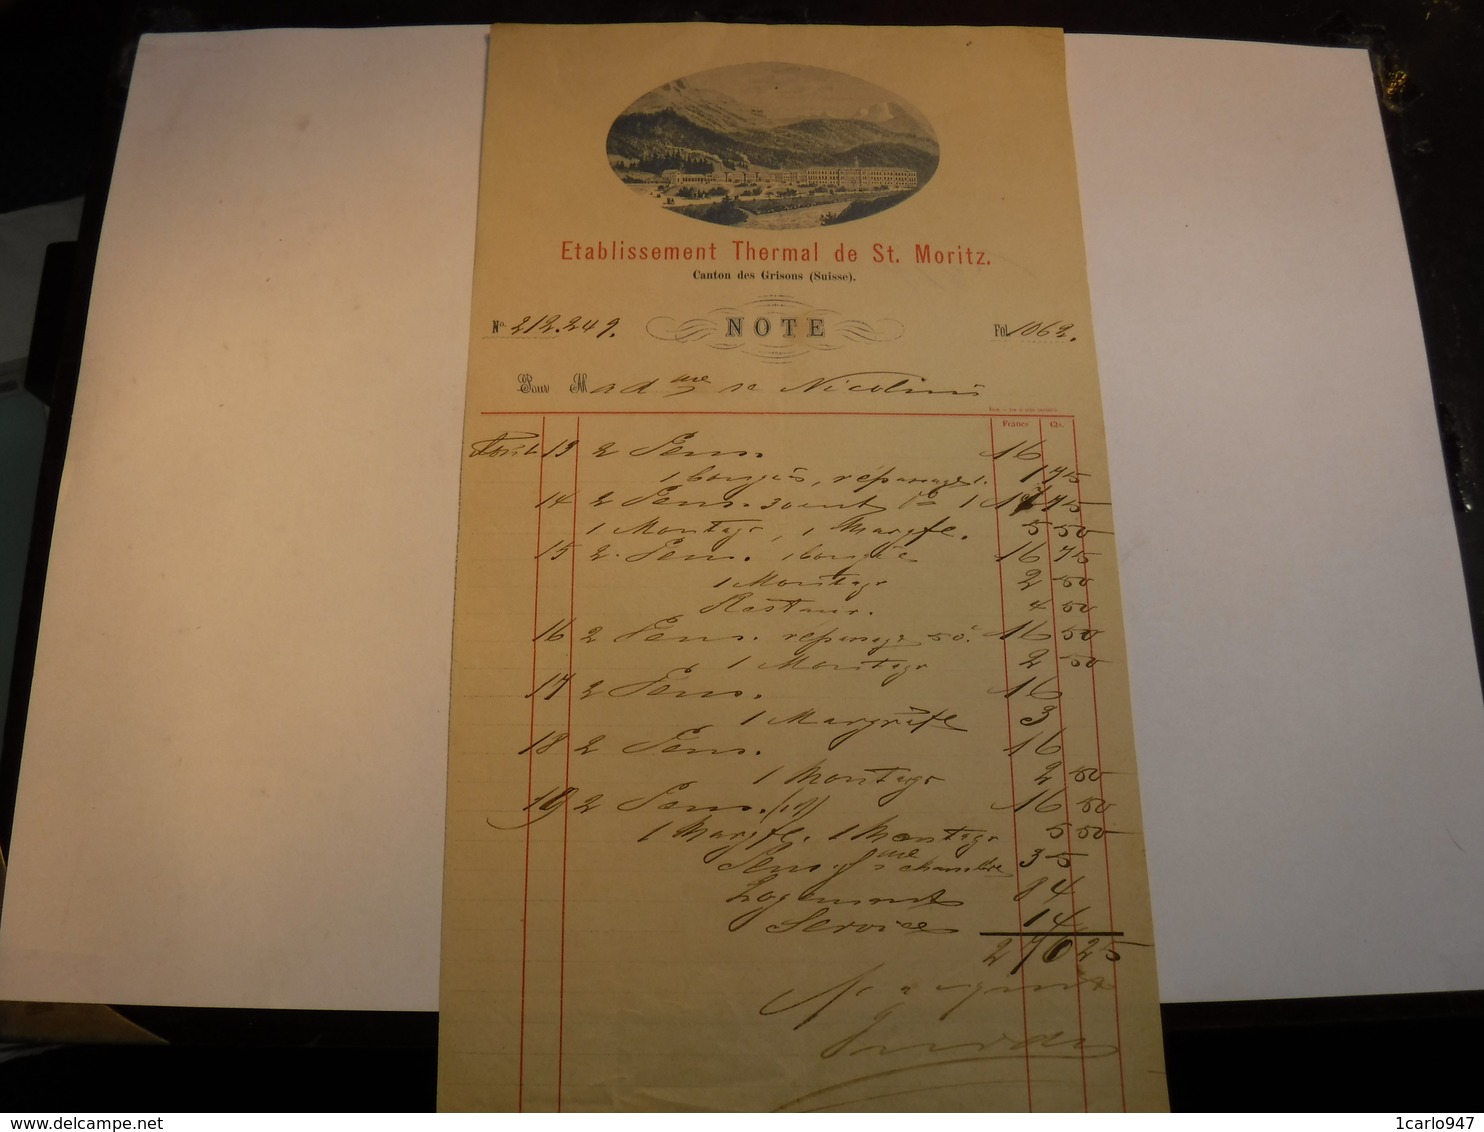 Etablissement Thermal de St. Moritz.
Canton des Grisons (Suisse).
No. 212.249. NOTE Fol. 1062.
Pour Madme de Nicolini
Francs Cts.
13 2 Pens. 16
1 bougie, repassage 1. 1 75
14 2 Pens. 1 75
1 Montage, 1 Margfle. 5 50
15 2. Pens. 1 bougie 16 75
1 Montage 2 50
Restaur. 4 50
16 2 Pens. repassage 50c. 16 50
1 Montage 2 50
17 2 Pens. 16
1 Margräfle 3
18 2 Pens. 16
1 Montage 2 50
19 2 Pens. 16 50
1 Margfle. 1 Montage 5 50
Pens. fme chambre 35
Logement 84
Service 14
276 25
delcampe.net
1carlo947